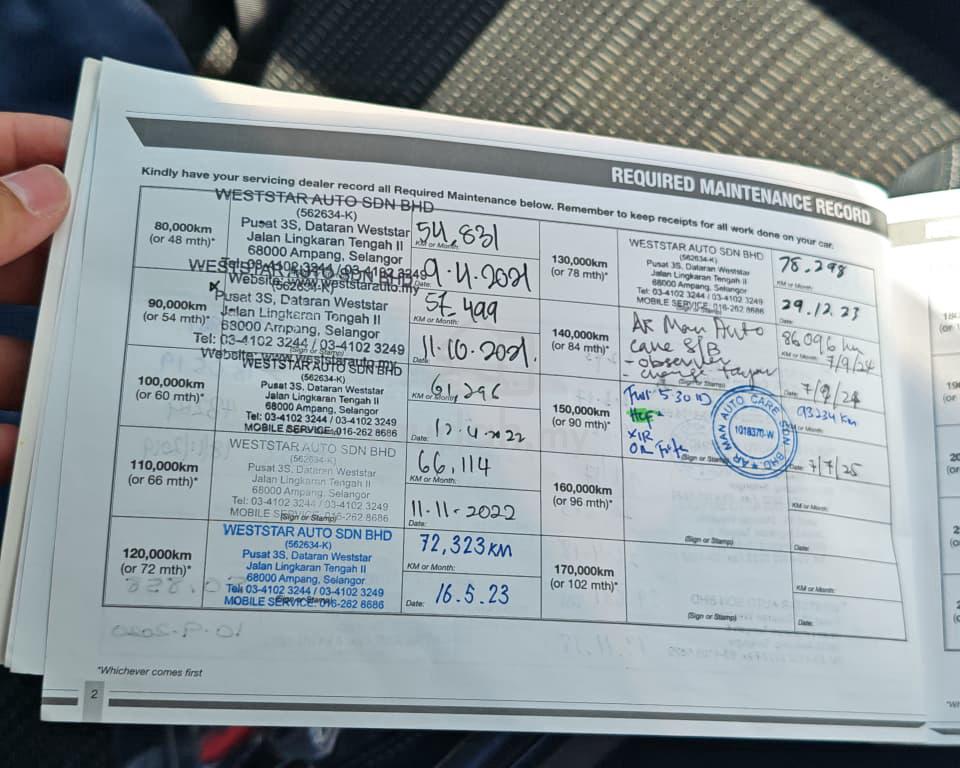 REQUIRED MAINTENANCE RECORD
Kindly have your servicing dealer record all Required Maintenance below. Remember to keep receipts for all work done on your car.
80,000km
(or 48 mth)*
WESTSTAR AUTO SDN BHD
(562634-K)
Pusat 3S, Dataran Weststar
Jalan Lingkaran Tengah II
68000 Ampang, Selangor
Tel: 03-4102 3244 / 03-4102 3249
Website: www.weststarauto.my
54,831
KM or Month:
9.4.2021
Date:
90,000km
(or 54 mth)*
WESTSTAR AUTO SDN BHD
(562634-K)
Pusat 3S, Dataran Weststar
Jalan Lingkaran Tengah II
68000 Ampang, Selangor
Tel: 03-4102 3244 / 03-4102 3249
(Sign or Stamp)
Website: www.weststarauto.my
57,499
KM or Month:
11.10.2021.
Date:
100,000km
(or 60 mth)*
WESTSTAR AUTO SDN BHD
(562634-K)
Pusat 3S, Dataran Weststar
Jalan Lingkaran Tengah II
68000 Ampang, Selangor
Tel: 03-4102 3244 / 03-4102 3249
MOBILE SERVICE: 016-262 8686
61,296
KM or Month:
12.4.2022
Date:
110,000km
(or 66 mth)*
WESTSTAR AUTO SDN BHD
(562634-K)
Pusat 3S, Dataran Weststar
Jalan Lingkaran Tengah II
68000 Ampang, Selangor
Tel: 03-4102 3244 / 03-4102 3249
MOBILE SERVICE: 016-262 8686
(Sign or Stamp)
66,114
KM or Month:
11.11.2022
Date:
120,000km
(or 72 mth)*
WESTSTAR AUTO SDN BHD
(562634-K)
Pusat 3S, Dataran Weststar
Jalan Lingkaran Tengah II
68000 Ampang, Selangor
Tel: 03-4102 3244 / 03-4102 3249
(Sign or Stamp)
MOBILE SERVICE: 016-262 8686
72,323KM
KM or Month:
Date: 16.5.23
130,000km
(or 78 mth)*
WESTSTAR AUTO SDN BHD
(562634-K)
Pusat 3S, Dataran Weststar
Jalan Lingkaran Tengah II
68000 Ampang, Selangor
Tel: 03-4102 3244 / 03-4102 3249
MOBILE SERVICE: 016-262 8686
(Sign or Stamp)
78,298
KM or Month:
29.12.23
Date:
140,000km
(or 84 mth)*
AR Man Auto
care S/B
(Sign or Stamp)
86096 km
KM or Month: 7/9/24
Date:
150,000km
(or 90 mth)*
5.30
AR MAN AUTO CARE SDN. BHD.
1018370-W
(Sign or Stamp)
93234 Km
KM or Month:
Date: 7/7/25
160,000km
(or 96 mth)*
(Sign or Stamp)
KM or Month:
Date:
170,000km
(or 102 mth)*
(Sign or Stamp)
KM or Month:
Date:
*Whichever comes first
2